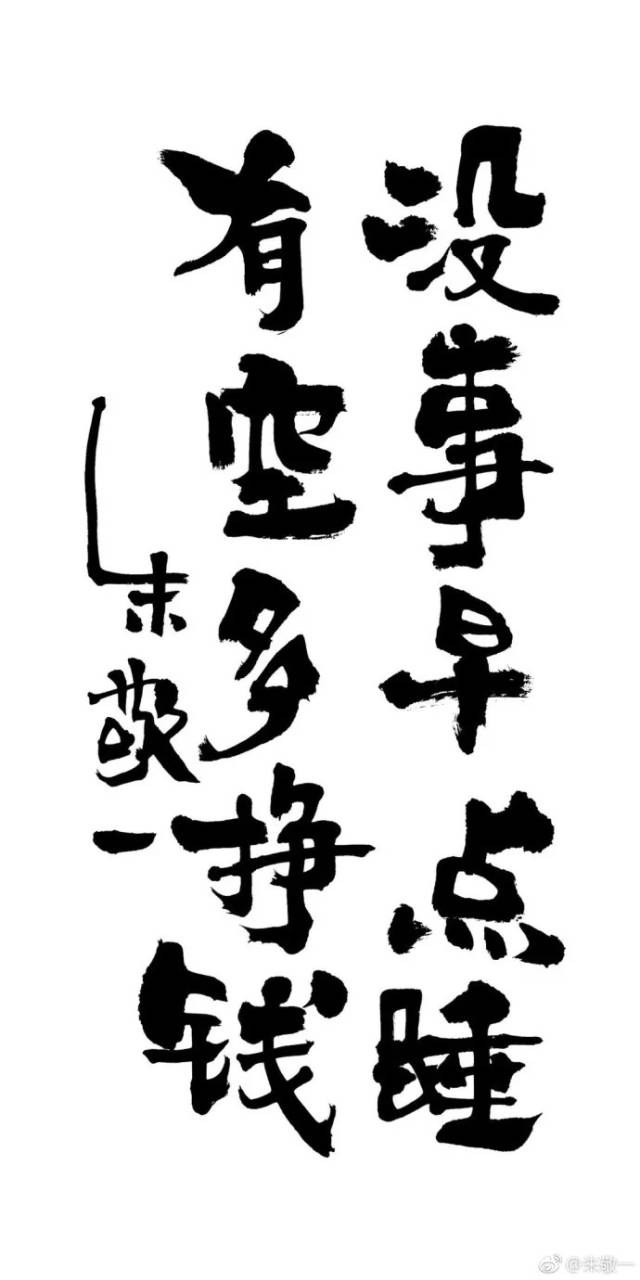 没事早点睡
有空多挣钱
朱敬一
@朱敬一